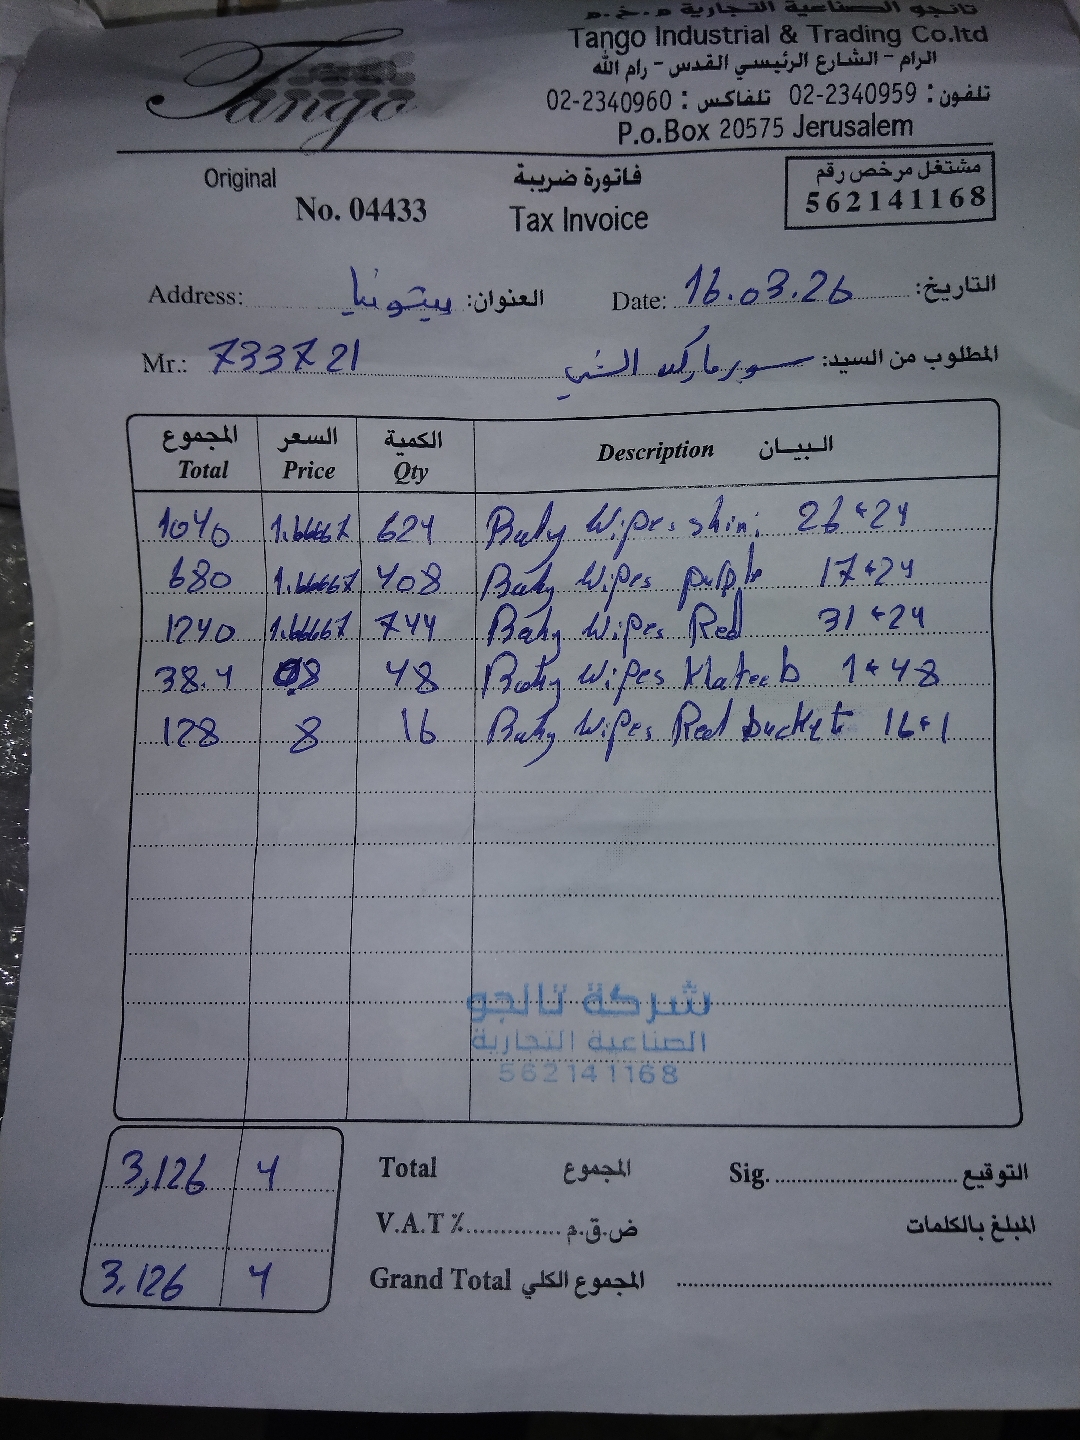 تانجو الصناعية التجارية م.خ.م
Tango
Tango Industrial & Trading Co.ltd
الرام - الشارع الرئيسي القدس - رام الله
تلفون : 02-2340959 تلفاكس : 02-2340960
P.o.Box 20575 Jerusalem
Original
No. 04433
فاتورة ضريبة
Tax Invoice
مشتغل مرخص رقم
562141168
Address: بيتونيا العنوان:
Date: 16.03.26 التاريخ:
Mr.: 733721
المطلوب من السيد: سوبرماركت
المجموع السعر الكمية البيـــان
Total Price Qty Description
1040 1.66667 624 Baby Wipes shini 26*24
680 1.66667 408 Baby Wipes purple 17*24
1240 1.66667 744 Baby Wipes Red 31*24
38.4 08 48 Baby Wipes Hateeb 1*48
128 8 16 Baby Wipes Red bucket 16*1
شركة تانجو
الصناعية التجارية
562141168
3,126 4 Total المجموع Sig. التوقيع
V.A.T % ض.ق.م المبلغ بالكلمات
3.126 4 Grand Total المجموع الكلي